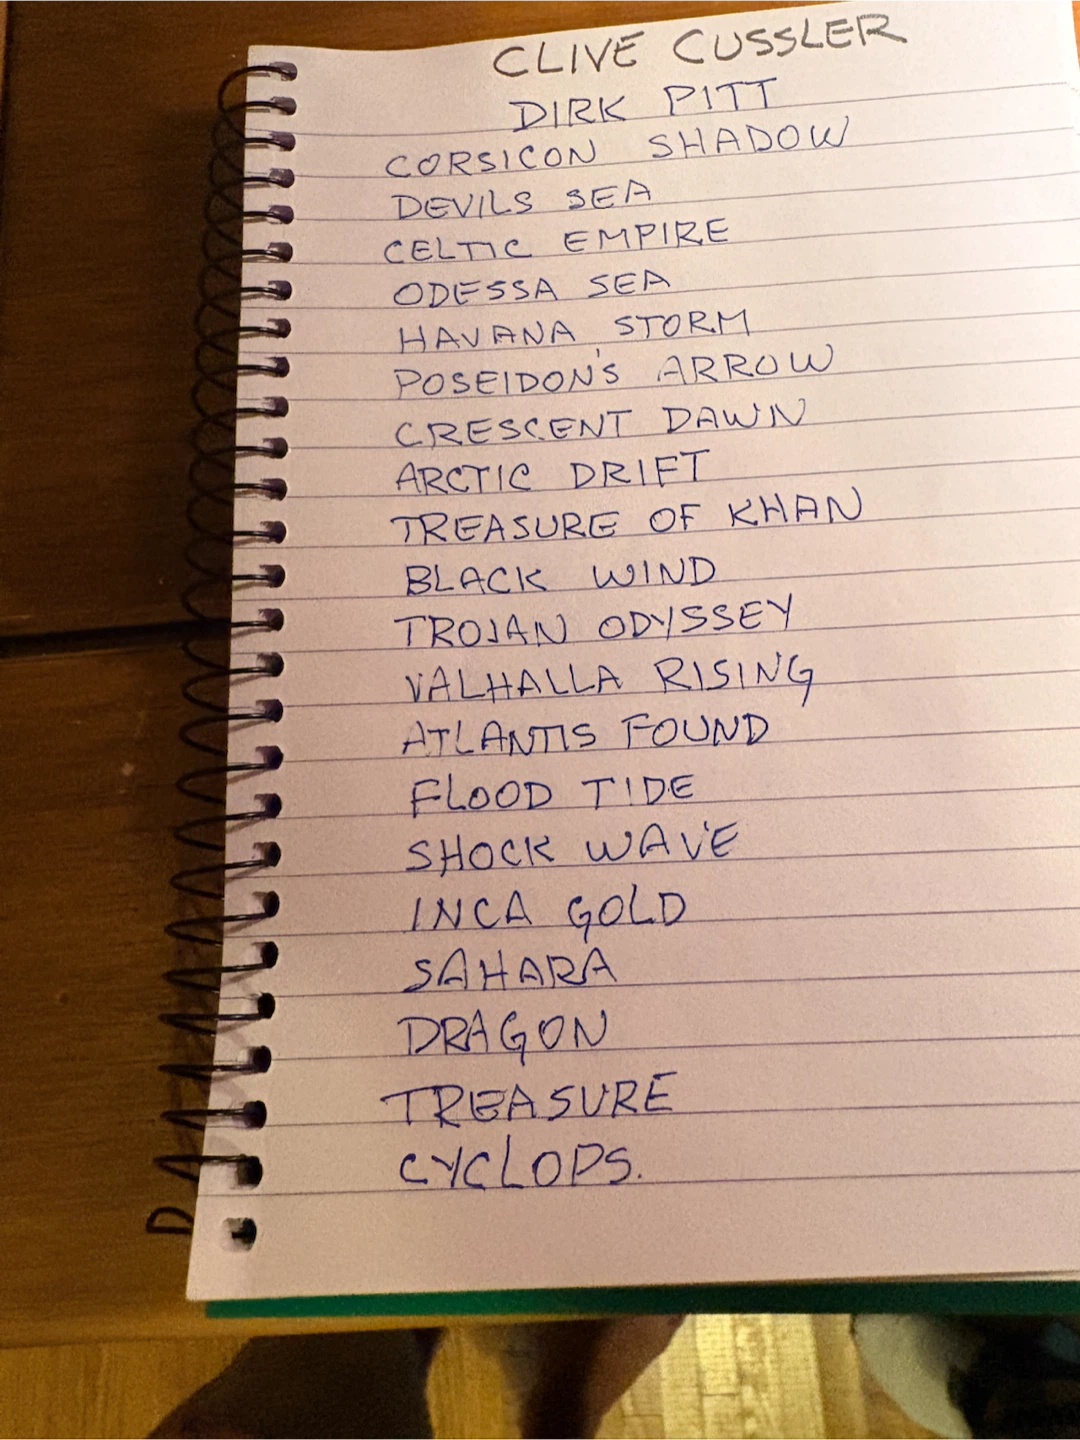 CLIVE CUSSLER
DIRK PITT
CORSICON SHADOW
DEVILS SEA
CELTIC EMPIRE
ODESSA SEA
HAVANA STORM
POSEIDON'S ARROW
CRESCENT DAWN
ARCTIC DRIFT
TREASURE OF KHAN
BLACK WIND
TROJAN ODYSSEY
VALHALLA RISING
ATLANTIS FOUND
FLOOD TIDE
SHOCK WAVE
INCA GOLD
SAHARA
DRAGON
TREASURE
CYCLOPS.